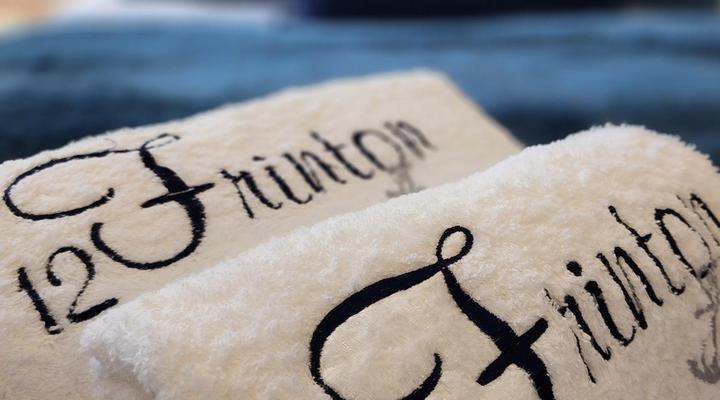 Frinton
12
Frinton